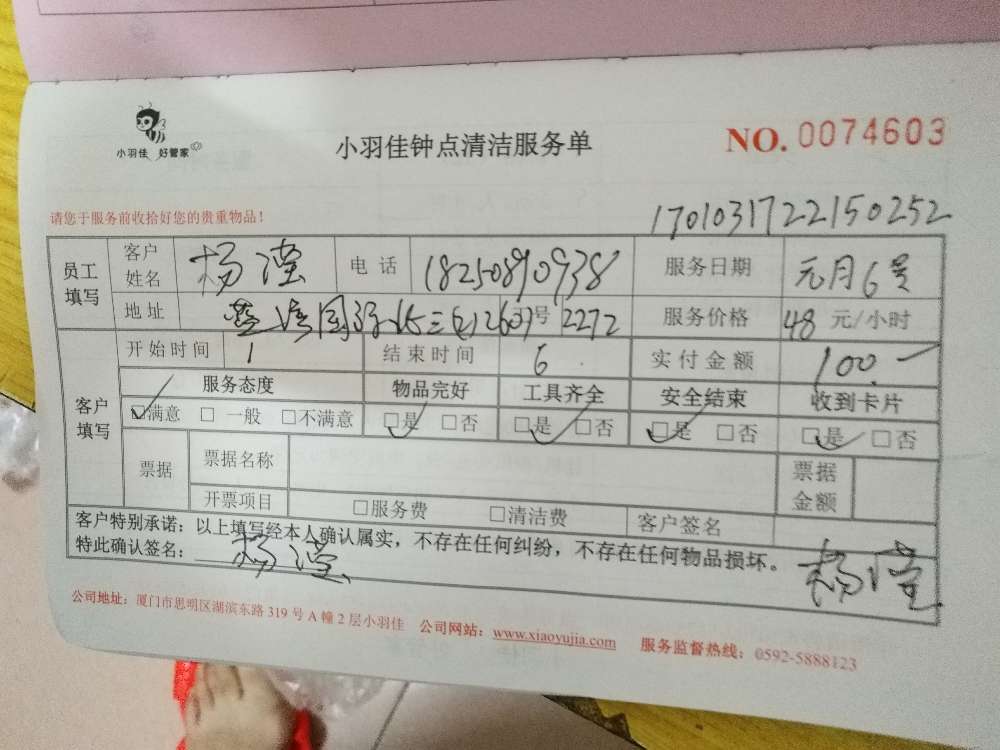 小羽佳 好管家
小羽佳钟点清洁服务单
NO. 0074603
请您于服务前收拾好您的贵重物品！
1701031722150252
员工填写 客户姓名 杨滢 电话 18250890938 服务日期 元月6号
地址 号 2272 服务价格 48 元/小时
客户填写 开始时间 1 结束时间 6 实付金额 100.—
服务态度 物品完好 工具齐全 安全结束 收到卡片
☑满意 □一般 □不满意 ☑是 □否 ☑是 □否 ☑是 □否 ☑是 □否
票据 票据名称 票据金额
开票项目 □服务费 □清洁费 客户签名
客户特别承诺：以上填写经本人确认属实，不存在任何纠纷，不存在任何物品损坏。
特此确认签名： 杨滢 杨滢
公司地址：厦门市思明区湖滨东路 319 号 A 幢 2 层小羽佳 公司网站：www.xiaoyujia.com 服务监督热线：0592-5888123